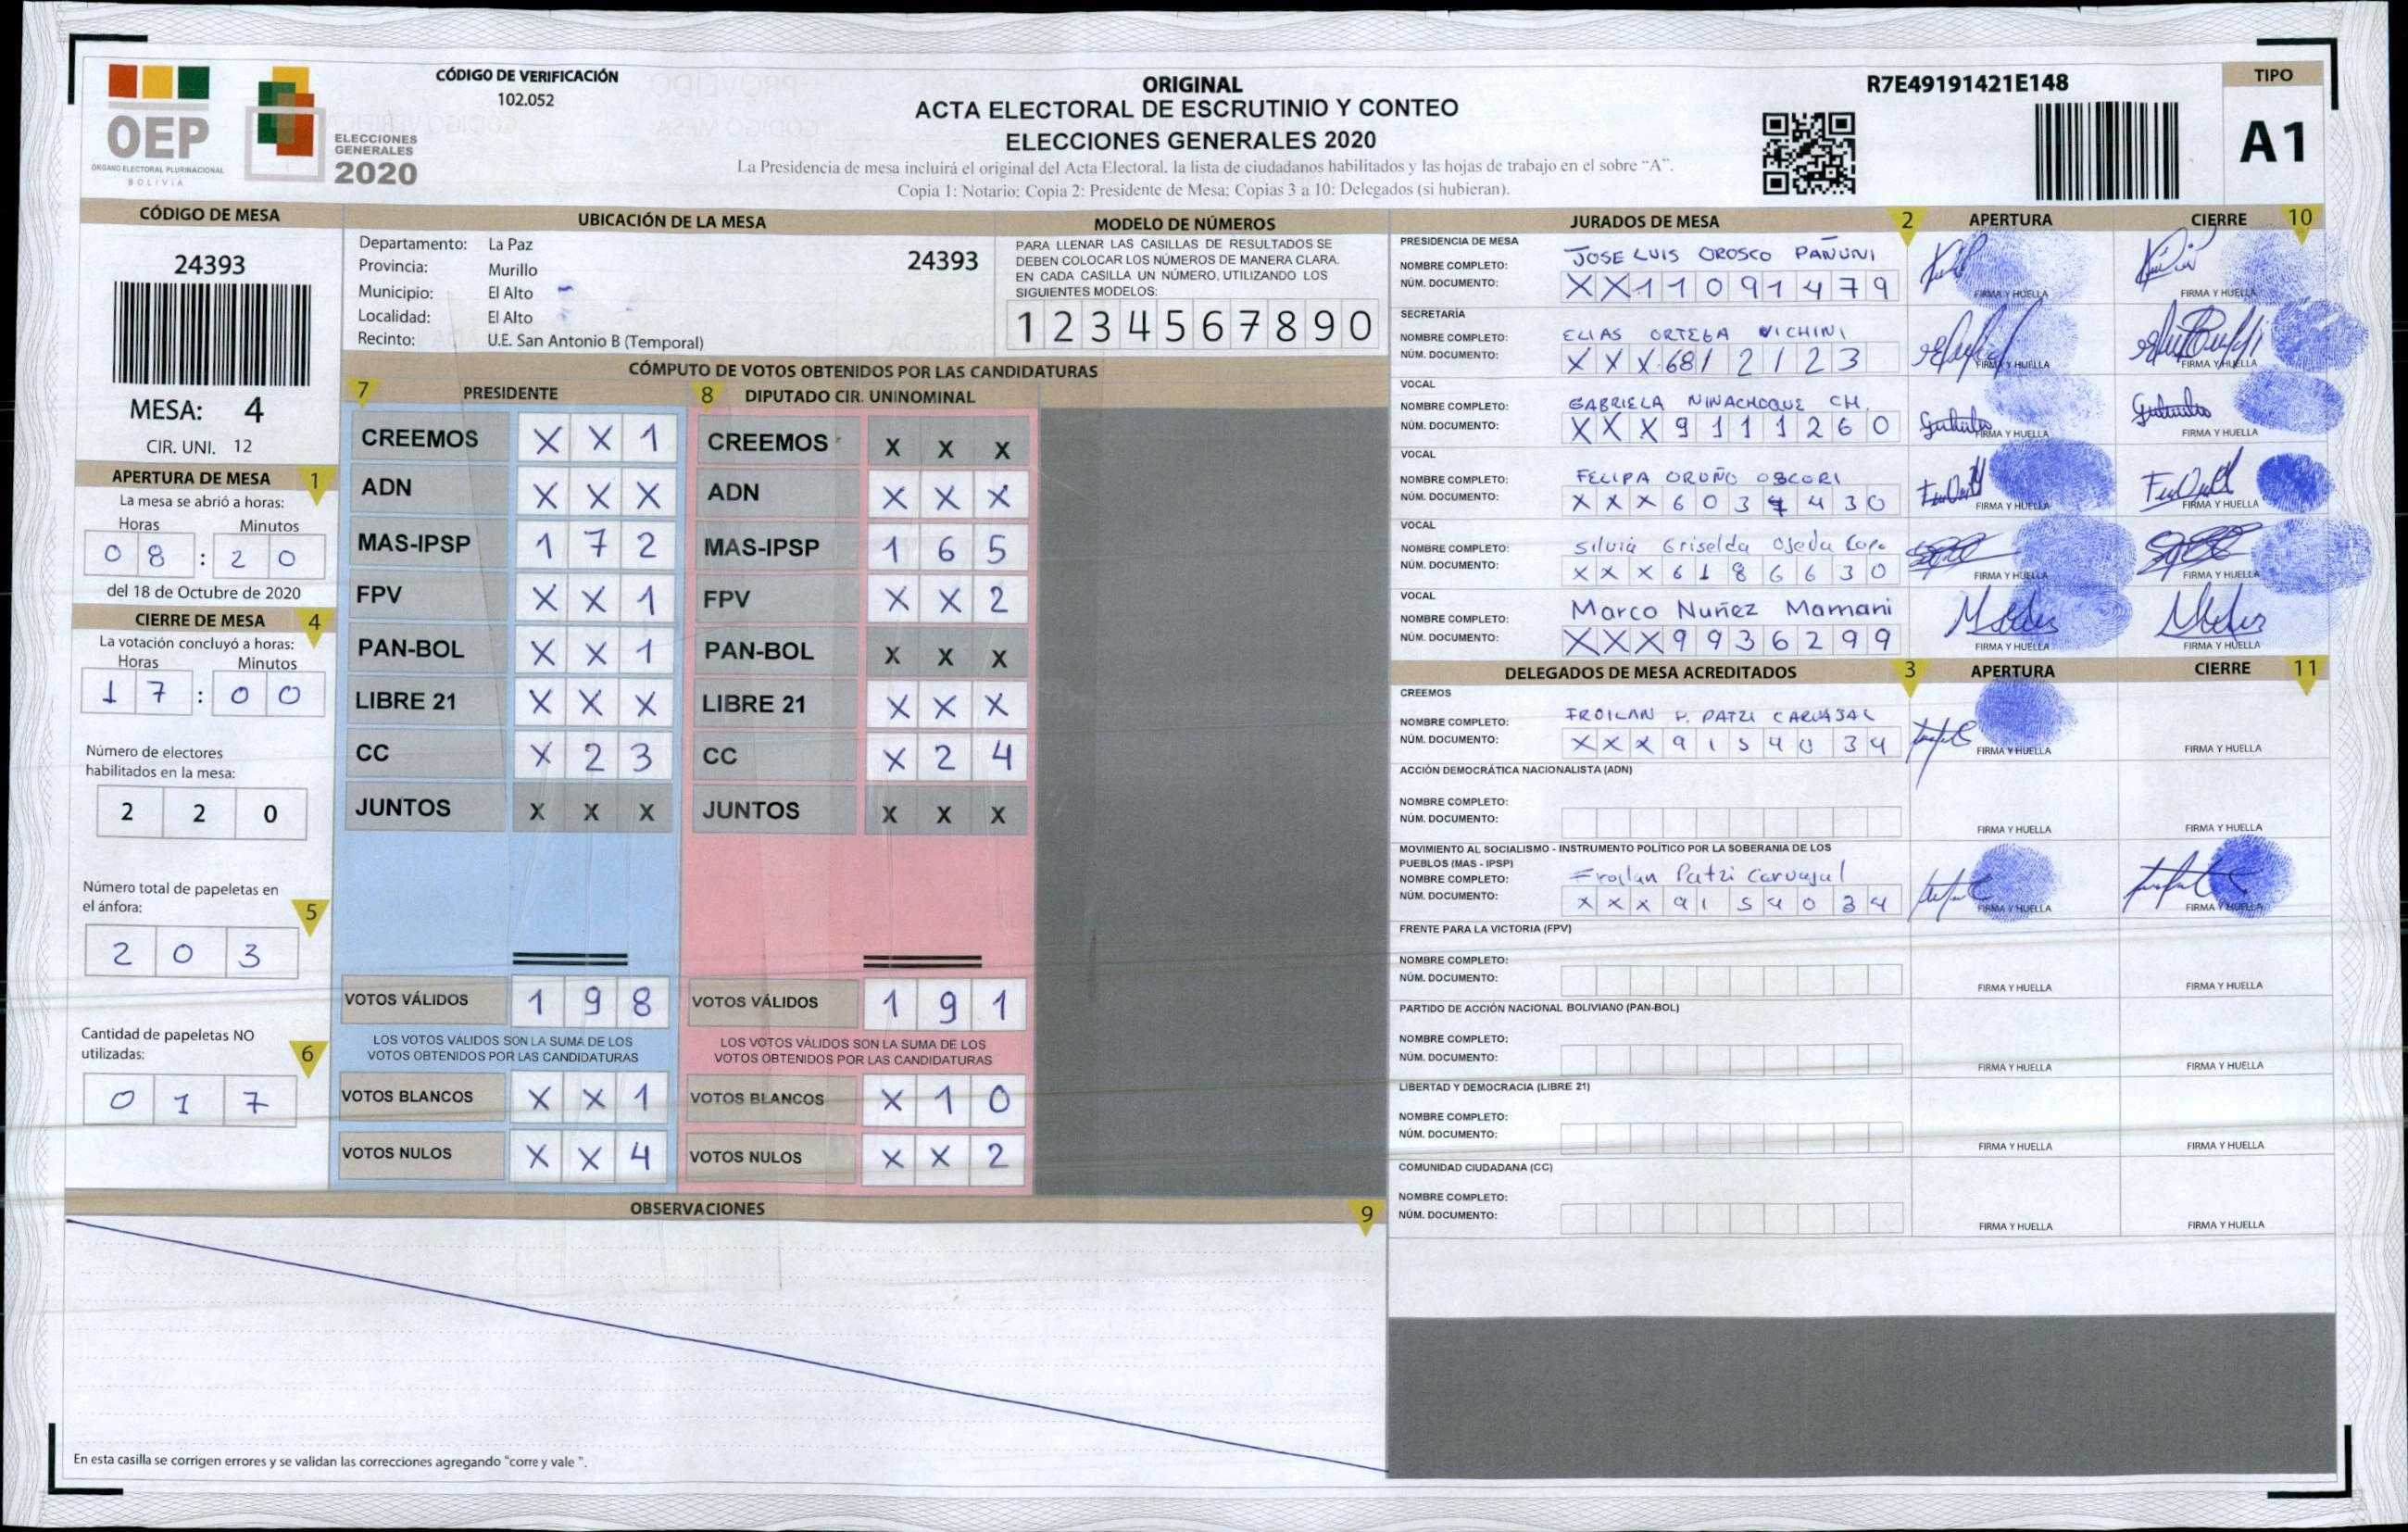 CÓDIGO DE VERIFICACIÓN
102.052
OEP
ÓRGANO ELECTORAL PLURINACIONAL
BOLIVIA
ELECCIONES
GENERALES
2020
ORIGINAL
ACTA ELECTORAL DE ESCRUTINIO Y CONTEO
ELECCIONES GENERALES 2020
La Presidencia de mesa incluirá el original del Acta Electoral, la lista de ciudadanos habilitados y las hojas de trabajo en el sobre "A".
Copia 1: Notario; Copia 2: Presidente de Mesa; Copias 3 a 10: Delegados (si hubieran).
R7E49191421E148
TIPO
A1
CÓDIGO DE MESA
24393
MESA: 4
CIR. UNI. 12
APERTURA DE MESA 1
La mesa se abrió a horas:
Horas Minutos
0 8 : 2 0
del 18 de Octubre de 2020
CIERRE DE MESA 4
La votación concluyó a horas:
Horas Minutos
1 7 : 0 0
Número de electores
habilitados en la mesa:
2 2 0
Número total de papeletas en
el ánfora: 5
2 0 3
Cantidad de papeletas NO
utilizadas: 6
0 1 7
UBICACIÓN DE LA MESA
Departamento: La Paz
24393
Provincia: Murillo
Municipio: El Alto
Localidad: El Alto
Recinto: U.E. San Antonio B (Temporal)
MODELO DE NÚMEROS
PARA LLENAR LAS CASILLAS DE RESULTADOS SE
DEBEN COLOCAR LOS NÚMEROS DE MANERA CLARA.
EN CADA CASILLA UN NÚMERO, UTILIZANDO LOS
SIGUIENTES MODELOS:
1 2 3 4 5 6 7 8 9 0
CÓMPUTO DE VOTOS OBTENIDOS POR LAS CANDIDATURAS
7 PRESIDENTE
CREEMOS X X 1
ADN X X X
MAS-IPSP 1 7 2
FPV X X 1
PAN-BOL X X 1
LIBRE 21 X X X
CC X 2 3
JUNTOS X X X
VOTOS VÁLIDOS 1 9 8
LOS VOTOS VÁLIDOS SON LA SUMA DE LOS
VOTOS OBTENIDOS POR LAS CANDIDATURAS
VOTOS BLANCOS X X 1
VOTOS NULOS X X 4
8 DIPUTADO CIR. UNINOMINAL
CREEMOS X X X
ADN X X X
MAS-IPSP 1 6 5
FPV X X 2
PAN-BOL X X X
LIBRE 21 X X X
CC X 2 4
JUNTOS X X X
VOTOS VÁLIDOS 1 9 1
LOS VOTOS VÁLIDOS SON LA SUMA DE LOS
VOTOS OBTENIDOS POR LAS CANDIDATURAS
VOTOS BLANCOS X 1 0
VOTOS NULOS X X 2
OBSERVACIONES 9
En esta casilla se corrigen errores y se validan las correcciones agregando "corre y vale ".
JURADOS DE MESA 2 APERTURA CIERRE 10
PRESIDENCIA DE MESA
NOMBRE COMPLETO: JOSE LUIS OROSCO PAÑUNI
NÚM. DOCUMENTO: X X 1 1 0 9 1 4 7 9
FIRMA Y HUELLA FIRMA Y HUELLA
SECRETARÍA
NOMBRE COMPLETO: ELIAS ORTEGA VICHINI
NÚM. DOCUMENTO: X X X 6 8 1 2 1 2 3
FIRMA Y HUELLA FIRMA Y HUELLA
VOCAL
NOMBRE COMPLETO: GABRIELA NINACHOQUE CH.
NÚM. DOCUMENTO: X X X 9 1 1 1 2 6 0
FIRMA Y HUELLA FIRMA Y HUELLA
VOCAL
NOMBRE COMPLETO: FELIPA ORUÑO OSCORI
NÚM. DOCUMENTO: X X X 6 0 3 4 4 3 0
FIRMA Y HUELLA FIRMA Y HUELLA
VOCAL
NOMBRE COMPLETO: Silvia Griselda Ojeda
NÚM. DOCUMENTO: X X X 6 1 8 6 6 3 0
FIRMA Y HUELLA FIRMA Y HUELLA
VOCAL
NOMBRE COMPLETO: Marco Nuñez Mamani
NÚM. DOCUMENTO: X X X 9 9 3 6 2 9 9
FIRMA Y HUELLA FIRMA Y HUELLA
DELEGADOS DE MESA ACREDITADOS 3 APERTURA CIERRE 11
CREEMOS
NOMBRE COMPLETO: FROILAN P. PATZI CARVAJAL
NÚM. DOCUMENTO: X X X 9 1 5 4 0 3 4
FIRMA Y HUELLA FIRMA Y HUELLA
ACCIÓN DEMOCRÁTICA NACIONALISTA (ADN)
NOMBRE COMPLETO:
NÚM. DOCUMENTO:
FIRMA Y HUELLA FIRMA Y HUELLA
MOVIMIENTO AL SOCIALISMO - INSTRUMENTO POLÍTICO POR LA SOBERANIA DE LOS
PUEBLOS (MAS - IPSP)
NOMBRE COMPLETO: Froilan Patzi Carvajal
NÚM. DOCUMENTO: X X X 9 1 5 4 0 3 4
FIRMA Y HUELLA FIRMA Y HUELLA
FRENTE PARA LA VICTORIA (FPV)
NOMBRE COMPLETO:
NÚM. DOCUMENTO:
FIRMA Y HUELLA FIRMA Y HUELLA
PARTIDO DE ACCIÓN NACIONAL BOLIVIANO (PAN-BOL)
NOMBRE COMPLETO:
NÚM. DOCUMENTO:
FIRMA Y HUELLA FIRMA Y HUELLA
LIBERTAD Y DEMOCRACIA (LIBRE 21)
NOMBRE COMPLETO:
NÚM. DOCUMENTO:
FIRMA Y HUELLA FIRMA Y HUELLA
COMUNIDAD CIUDADANA (CC)
NOMBRE COMPLETO:
NÚM. DOCUMENTO:
FIRMA Y HUELLA FIRMA Y HUELLA